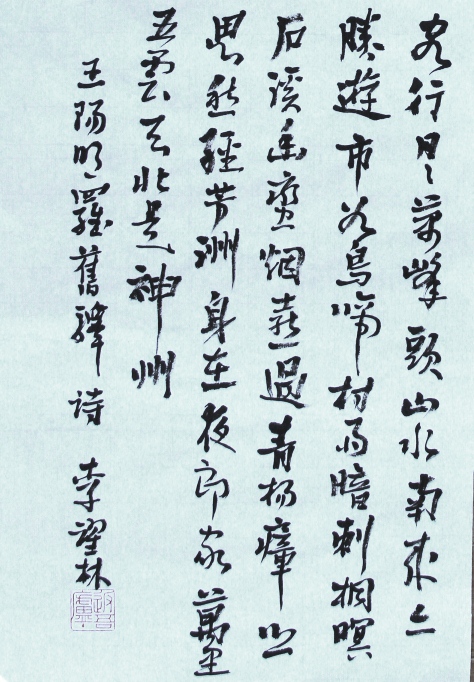 客行日々萬峰頭山水南來亦
勝遊布谷鳥啼村雨暗刺桐暝
石溪幽蠻烟喜過青楊瘴乡
思愁經芳洲身在夜郎家萬里
五雲天北是神州
王陽明羅舊驛詩 李望林